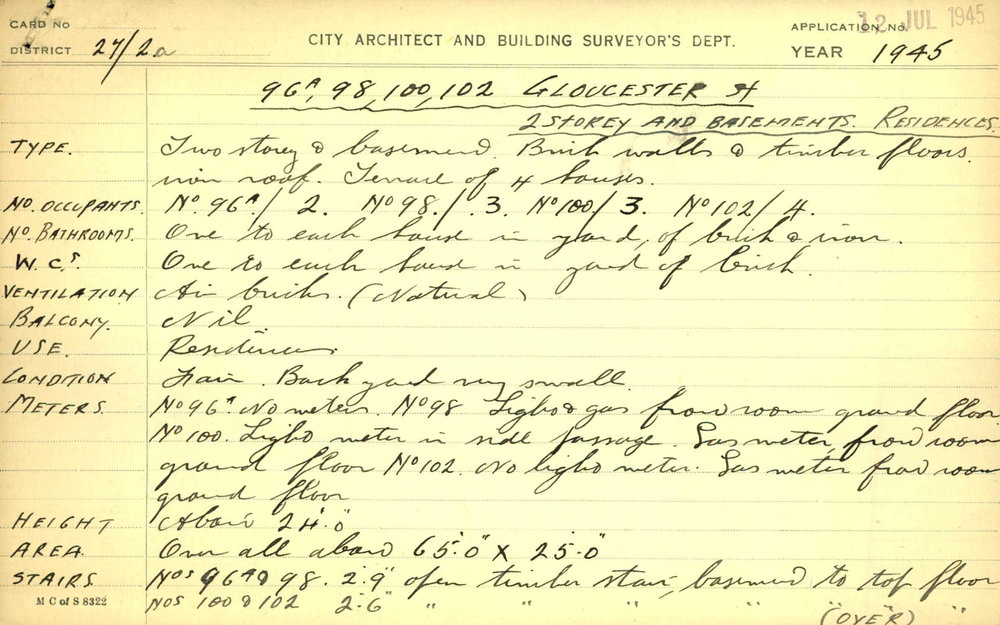 CARD No
DISTRICT 27/2a
CITY ARCHITECT AND BUILDING SURVEYOR'S DEPT.
APPLICATION No.
12 JUL 1945
YEAR 1945
96A, 98, 100, 102 GLOUCESTER St
2 STOREY AND BASEMENTS. RESIDENCES.
TYPE. Two storey & basement. Brick walls & timber floors.
iron roof. Terrace of 4 houses.
No. OCCUPANTS. No 96A/ 2. No 98/. 3. No 100/ 3. No 102/ 4.
No. BATHROOMS. One to each house in yard, of brick & iron.
W.Cs. One to each house in yard of brick.
VENTILATION Air bricks. (Natural)
BALCONY. Nil
USE. Residences.
CONDITION Fair. Back yard very small.
METERS. No 96A No meters. No 98 Light & gas front room ground floor.
No 100. Light meter in side passage. Gas meter, front room
ground floor No 102. No light meter. Gas meter front room
ground floor
HEIGHT About 24'.0"
AREA. Over all about 65'.0" x 25'.0"
STAIRS Nos 96A & 98. 2'.9" open timber stair, basement to top floor
Nos 100 & 102 2'.6" " " " " " "
M C of S 8322
(OVER)